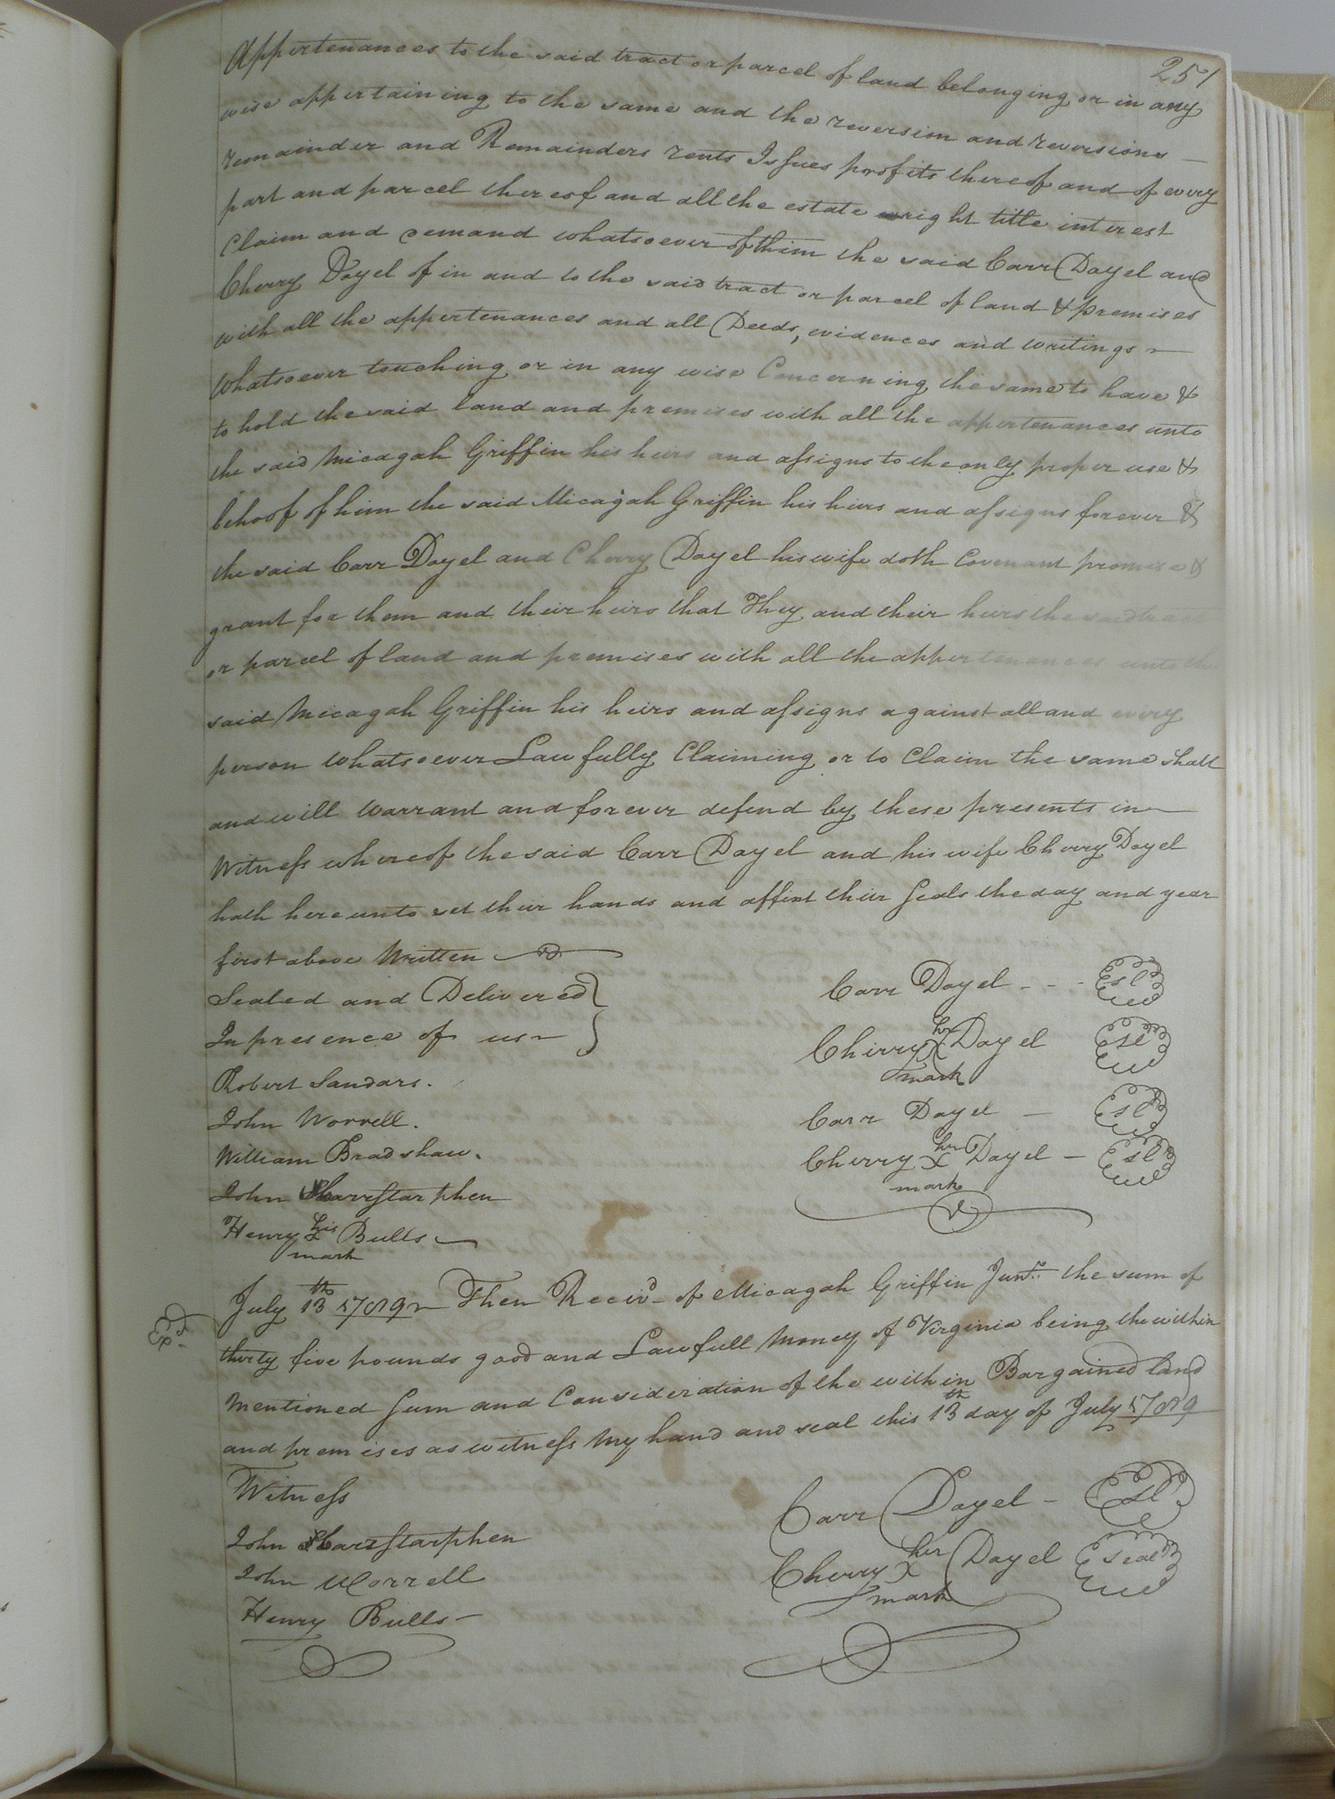 251
Appertenances to the said tract or parcel of land belonging or in any
wise appertaining to the same and the reversion and reversions
remainder and Remainders rents Issues profits thereof and of every
part and parcel thereof and all the estate right title interest
Claim and demand whatsoever of him the said Carr Doyel and
Cherry Doyel of in and to the said tract or parcel of land & premises
with all the appertenances and all Deeds, evidences and writings
Whatsoever touching or in any wise Concerning the same to have &
to hold the said land and premises with all the appertenances unto
the said Micagah Griffin his heirs and assigns to the only proper use &
behoof of him the said Micajah Griffin his heirs and assigns forever &
the said Carr Doyel and Cherry Doyel his wife doth Covenant promise &
grant for them and their heirs that They and their heirs the said tract
or parcel of land and premises with all the appertenances unto the
said Micagah Griffin his heirs and assigns against all and every
person whatsoever Lawfully Claiming or to Claim the same shall
and will Warrant and forever defend by these presents in
Witness whereof the said Carr Doyel and his wife Cherry Doyel
hath hereunto set their hands and affixt their Seals the day and year
first above Written
Sealed and Delivered
In presence of us
Robert Sandars.
John Worrell.
William Bradshaw.
John
Henry his Bulls
mark
Carr Doyel - - - sl
Cherry her X Doyel sl
mark
Carr Doyel — sl
Cherry her X Doyel — sl
mark
July 13th 1789 Then Receivd of Micagah Griffin Junr. the sum of
thirty five pounds good and Lawfull Money of Virginia being the within
Mentioned Sum and Consideration of the within Bargained land
and premises as witness My hand and seal this 13th day of July 1789
Witness
John
John Worrell
Henry Bulls
Carr Doyel — sl
Cherry her X Doyel seal
mark